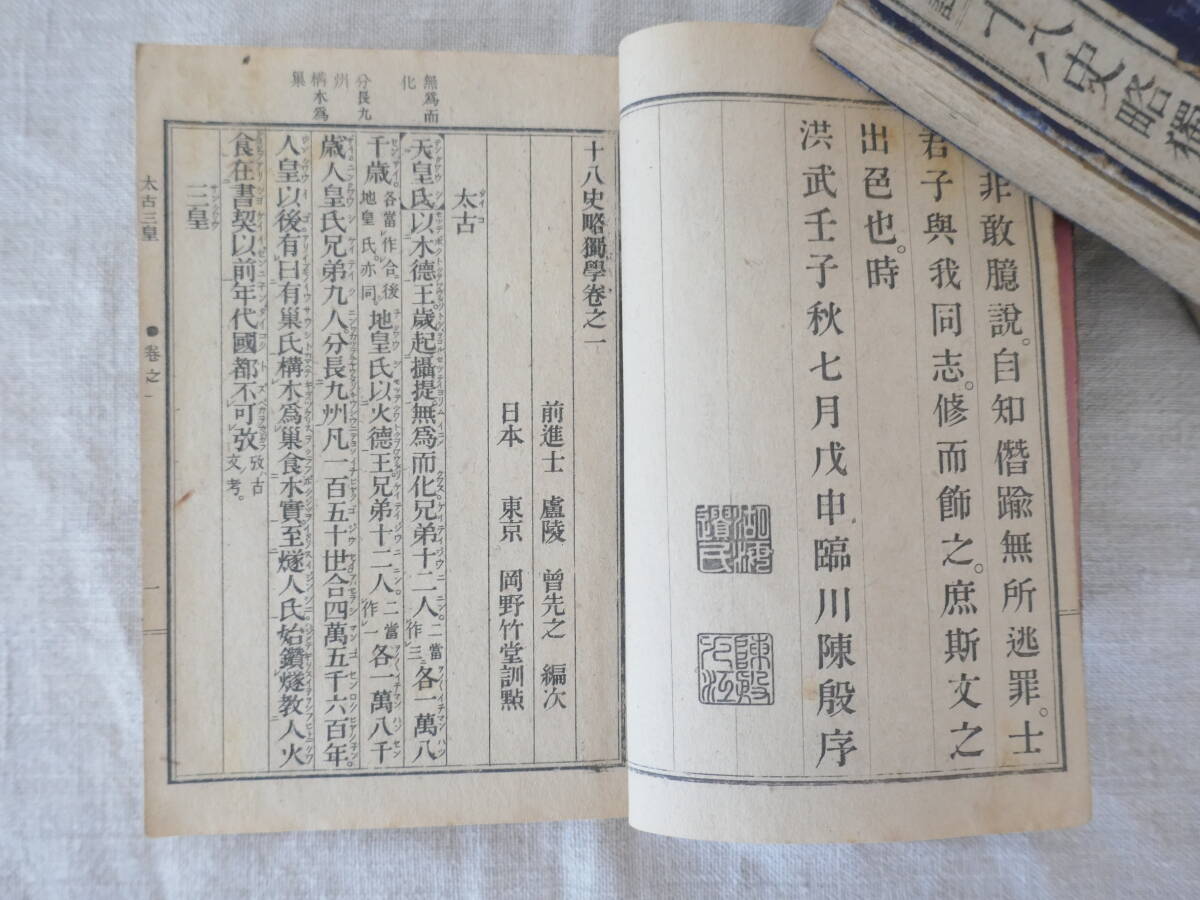 非敢臆說。自知僭踰無所逃罪。士
君子與我同志。修而飾之。庶斯文之
出色也。時
洪武壬子秋七月戊申臨川陳殷序
十八史略獨學卷之一
前進士 盧陵 曾先之 編次
日本 東京 岡野竹堂訓點
太古
天皇氏以木德王歲起攝提無爲而化兄弟十二人二當作三各一萬八
千歲各當作合後地皇氏亦同地皇氏以火德王兄弟十二人二當作一各一萬八千
歲人皇氏兄弟九人分長九州凡一百五十世合四萬五千六百年
人皇以後有曰有巢氏構木爲巢食木實至燧人氏始鑽燧教人火
食在書契以前年代國都不可攷攷古文考。
三皇
無爲而
化
分長九
州
構木爲
巢
太古三皇
卷之一
一
十八史略獨